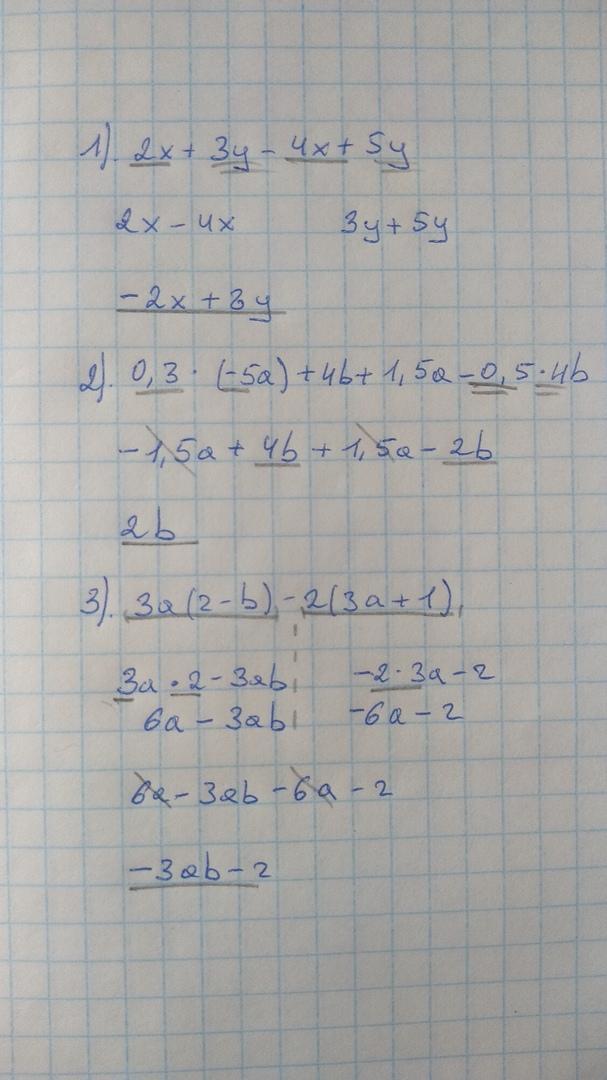 1). 2x + 3y - 4x + 5y
2x - 4x 3y + 5y
-2x + 8y
2). 0,3 · (-5a) + 4b + 1,5a - 0,5 · 4b
-1,5a + 4b + 1,5a - 2b
2b
3). 3a(2-b) - 2(3a+1)
3a · 2 - 3ab -2 · 3a - 2
6a - 3ab -6a - 2
6a - 3ab - 6a - 2
-3ab - 2